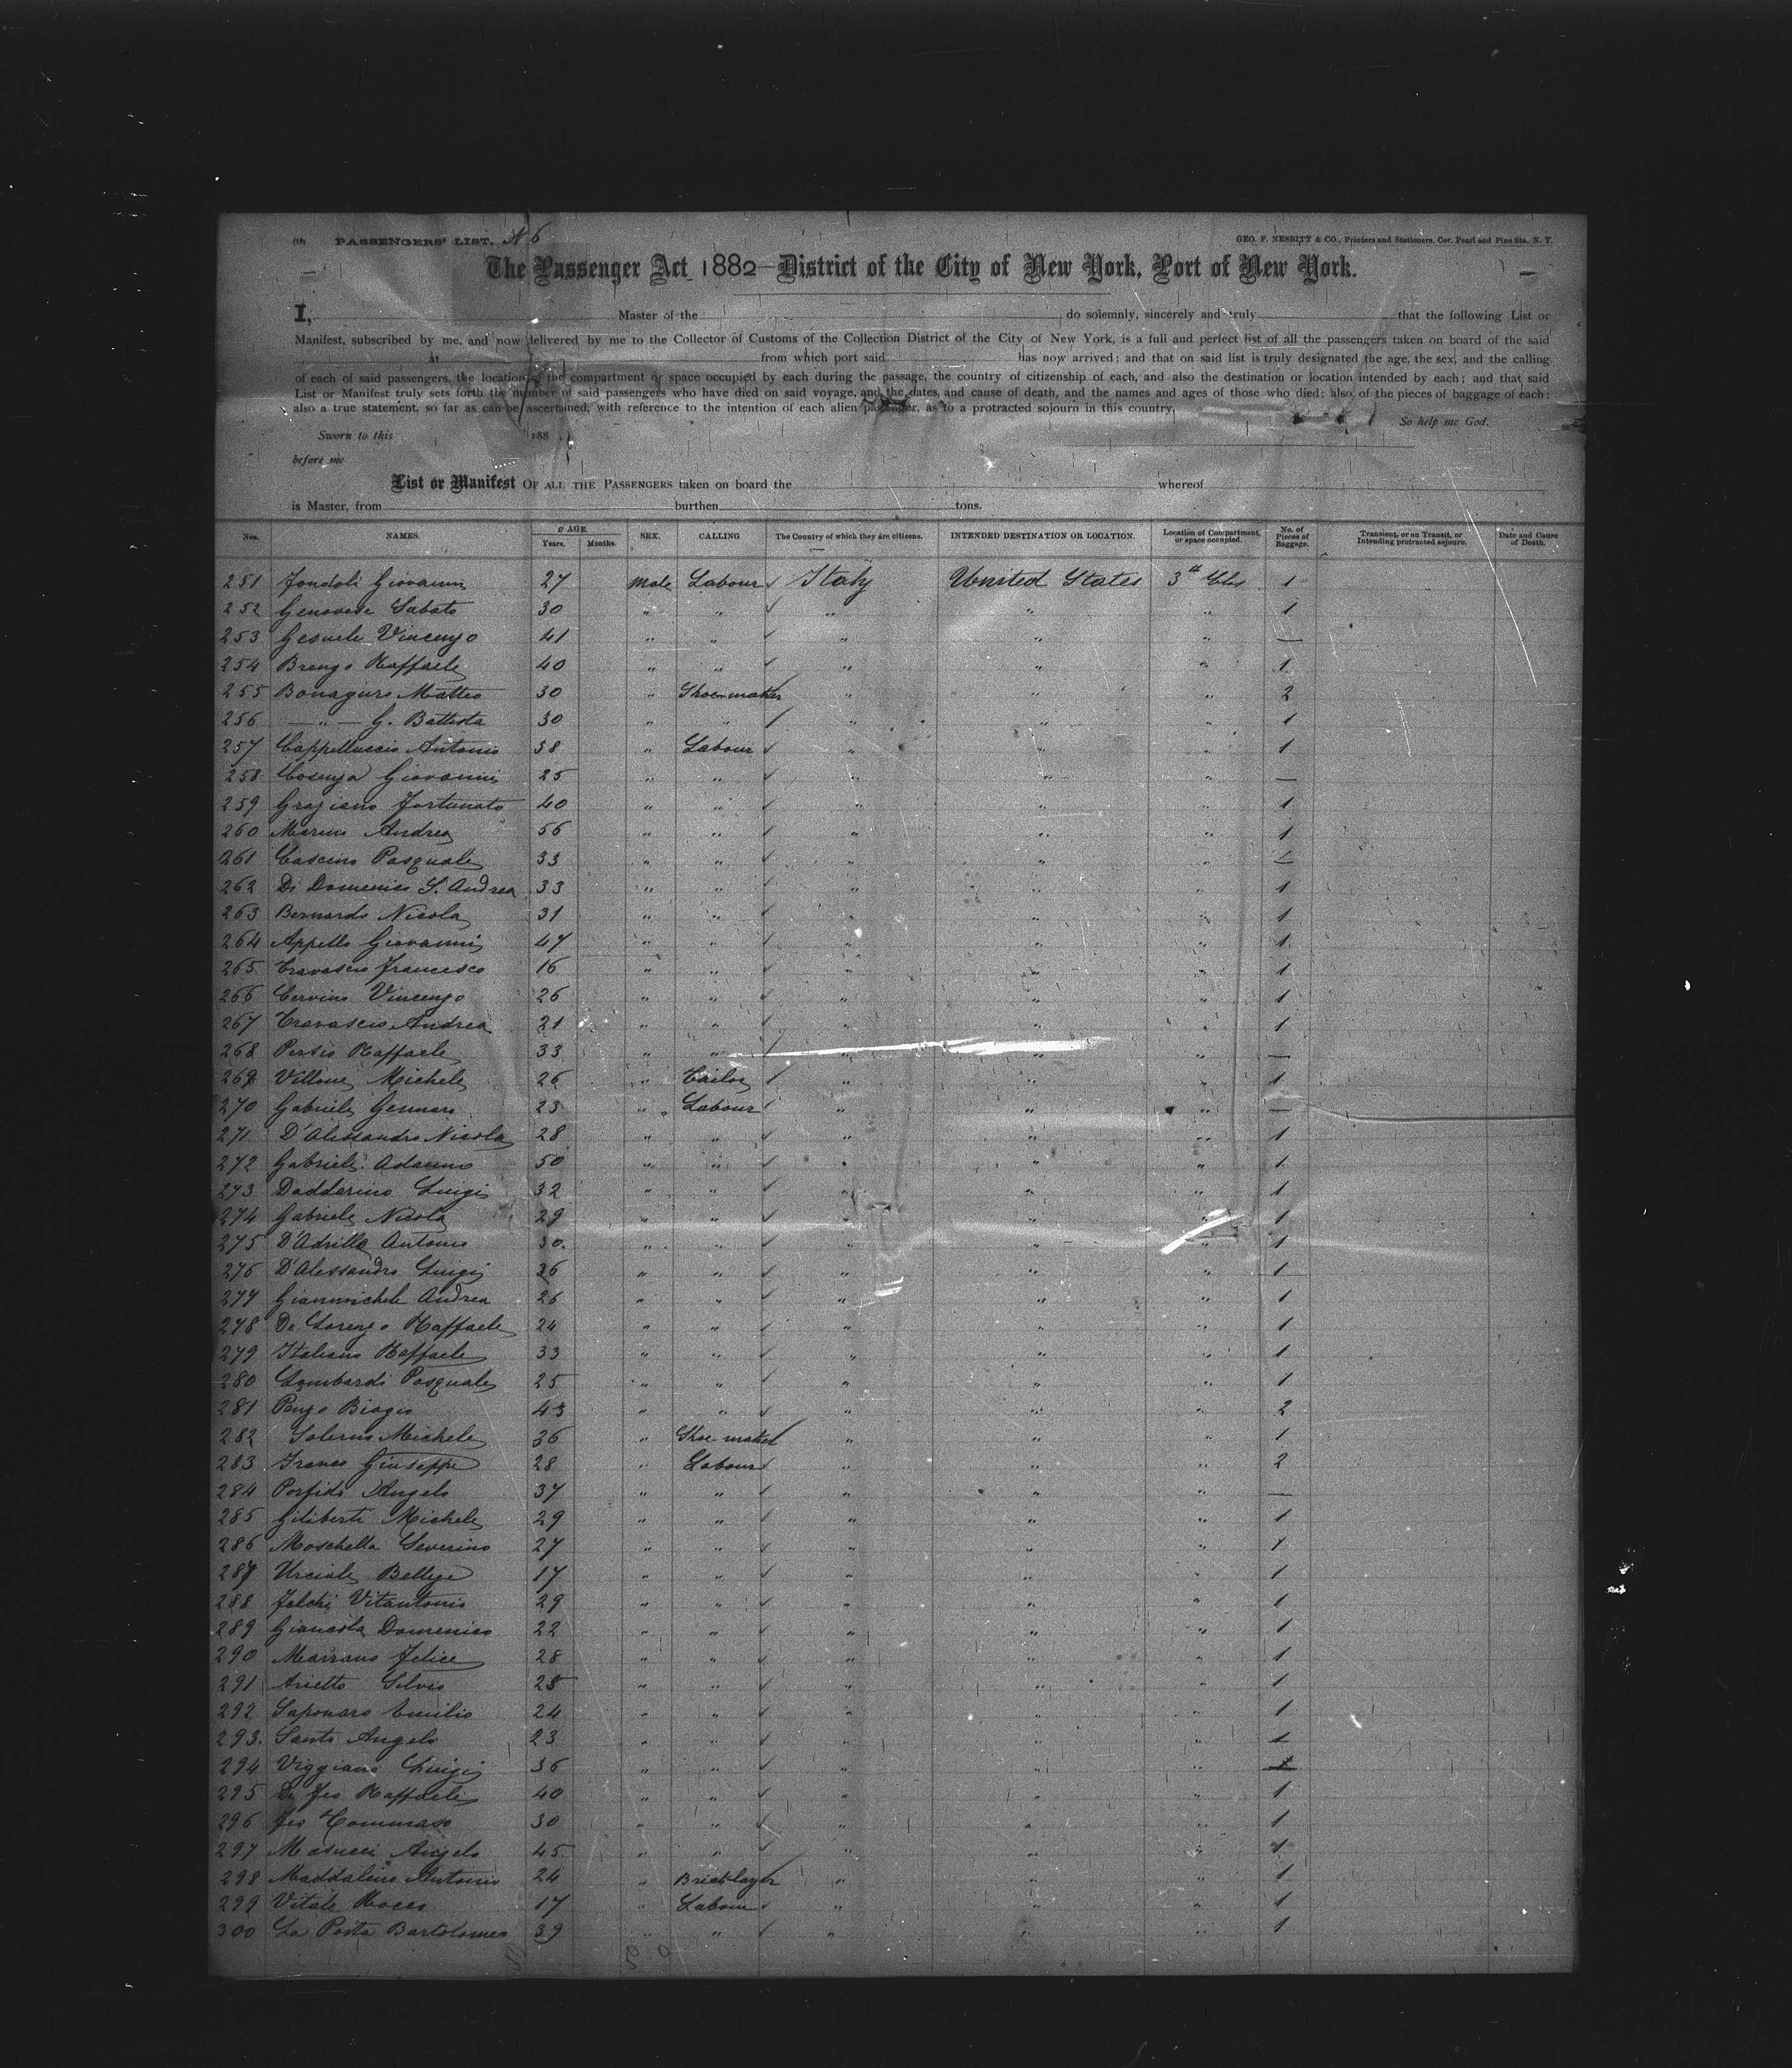 (18) PASSENGERS' LIST. N 6 GEO. F. NESBITT & CO., Printers and Stationers, Cor. Pearl and Pine Sts., N. Y.
The Passenger Act 1882—District of the City of New York, Port of New York.
I, Master of the do solemnly, sincerely and truly that the following List or
Manifest, subscribed by me, and now delivered by me to the Collector of Customs of the Collection District of the City of New York, is a full and perfect list of all the passengers taken on board of the said
at from which port said has now arrived; and that on said list is truly designated the age, the sex, and the calling
of each of said passengers, the location of the compartment or space occupied by each during the passage, the country of citizenship of each, and also the destination or location intended by each; and that said
List or Manifest truly sets forth the number of said passengers who have died on said voyage, and the dates, and cause of death, and the names and ages of those who died; also, of the pieces of baggage of each;
also a true statement, so far as can be ascertained, with reference to the intention of each alien passenger, as to a protracted sojourn in this country,
So help me God.
Sworn to this 188
before me
List or Manifest OF ALL THE PASSENGERS taken on board the whereof
is Master, from burthen tons.
Nos. NAMES. AGE. Years. Months. SEX. CALLING The Country of which they are citizens. INTENDED DESTINATION OR LOCATION. Location of Compartment, or space occupied. No. of Pieces of Baggage. Transient, or on Transit, or Intending protracted sojourn. Date and Cause of Death.
251 Fondoli Giovanni 27 Male Labour Italy United States 3th Cls 1
252 Genovese Sabato 30 " " " " " 1
253 Gesuele Vincenzo 41 " " " " " —
254 Brengo Raffaele 40 " " " " " 1
255 Bonaguro Matteo 30 " Shoe-maker " " " 2
256 —"— G. Battista 30 " " " " " 1
257 Cappelluccio Antonio 38 " Labour " " " 1
258 Cosenza Giovanni 25 " " " " " —
259 Graziano Fortunato 40 " " " " " 1
260 Marino Andrea 56 " " " " " 1
261 Cascino Pasquale 33 " " " " "
262 Di Domenico S. Andrea 33 " " " " " 1
263 Bernardo Nicola 31 " " " " " 1
264 Appello Giovanni 47 " " " " " 1
265 Travascio Francesco 16 " " " " " 1
266 Cervino Vincenzo 26 " " " " " 1
267 Travascio Andrea 21 " " " " " 1
268 Persio Raffaele 33 " " " " " —
269 Villone Michele 26 " Tailor " " " 1
270 Gabriele Gennaro 23 " Labour " " " —
271 D'Alessandro Nicola 28 " " " " " 1
272 Gabriele Adamo 50 " " " " " 1
273 Daddarino Luigi 32 " " " " " 1
274 Gabriele Nicola 29 " " " " " 1
275 D'Adrilla Antonio 30 " " " " " 1
276 D'Alessandro Luigi 36 " " " " " 1
277 Giannichele Andrea 26 " " " " " 1
278 De Lorenzo Raffaele 24 " " " " " 1
279 Italiano Raffaele 33 " " " " " 1
280 Lombardi Pasquale 25 " " " " " 1
281 Penzo Biagio 43 " " " " " 2
282 Salerno Michele 36 " Shoe-maker " " " 1
283 Franco Giuseppe 28 " Labour " " " 2
284 Porfido Angelo 37 " " " " " —
285 Giliberti Michele 29 " " " " " 1
286 Moschella Severino 27 " " " " " 1
287 Urciole 17 " " " " " 1
288 Felchi Vitantonio 29 " " " " " 1
289 Giancola Domenico 22 " " " " " 1
290 Marrano Felice 28 " " " " " 1
291 Arietto Silvio 25 " " " " " 1
292 Saponaro Emilio 24 " " " " " 1
293 Santo Angelo 23 " " " " " 1
294 Viggiano Luigi 36 " " " " "
295 De Feo Raffaele 40 " " " " " 1
296 Feo Tommaso 30 " " " " " 1
297 Masucci Angelo 45 " " " " " 1
298 Maddaleno Antonio 24 " Bricklayer " " " 1
299 Vitale Rocco 17 " Labour " " " 1
300 La Porta Bartolomeo 39 " " " " " 1